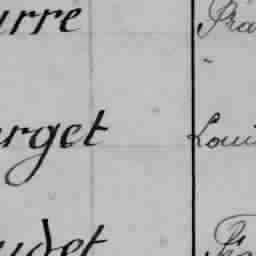 urre Fra
rget Loui
udet